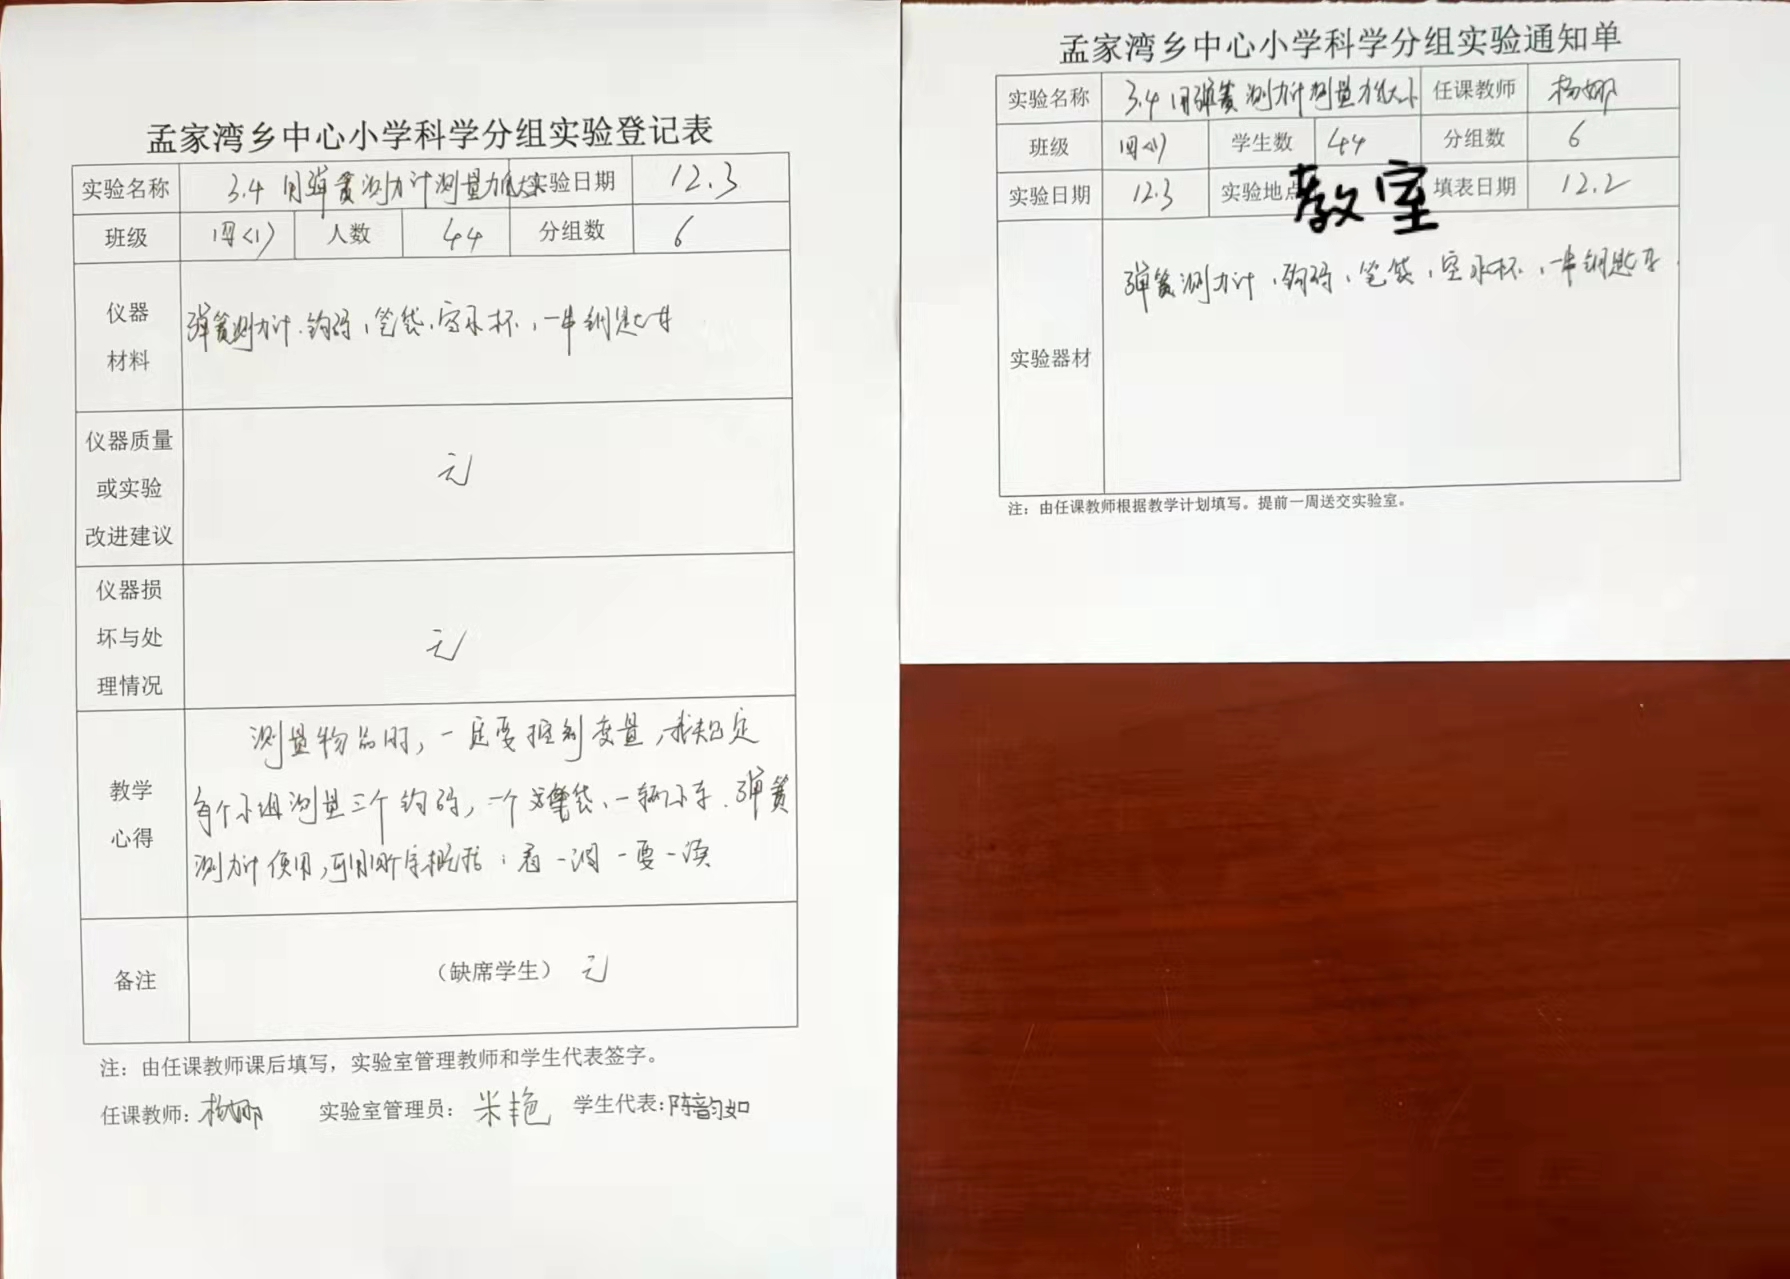 孟家湾乡中心小学科学分组实验登记表
实验名称 3.4 用弹簧测力计测量力的大小 实验日期 12.3
班级 四<1> 人数 44 分组数 6
仪器
材料
弹簧测力计、钩码、笔袋、空水杯、一串钥匙
仪器质量
或实验
改进建议
无
仪器损
坏与处
理情况
无
教学
心得
测量物品时,一定要控制变量,我规定
每个小组测量三个钩码,一个笔袋、一辆小车.弹簧
测力计使用,可用四个字概括:看一调一要一读
备注
(缺席学生) 无
注:由任课教师课后填写,实验室管理教师和学生代表签字。
任课教师:杨娜 实验室管理员:米艳 学生代表:陈韵如
孟家湾乡中心小学科学分组实验通知单
实验名称 3.4 用弹簧测力计测量力的大小 任课教师 杨娜
班级 四<1> 学生数 44 分组数 6
实验日期 12.3 实验地点 教室 填表日期 12.2
实验器材
弹簧测力计、钩码、笔袋、空水杯、一串钥匙
注:由任课教师根据教学计划填写。提前一周送交实验室。